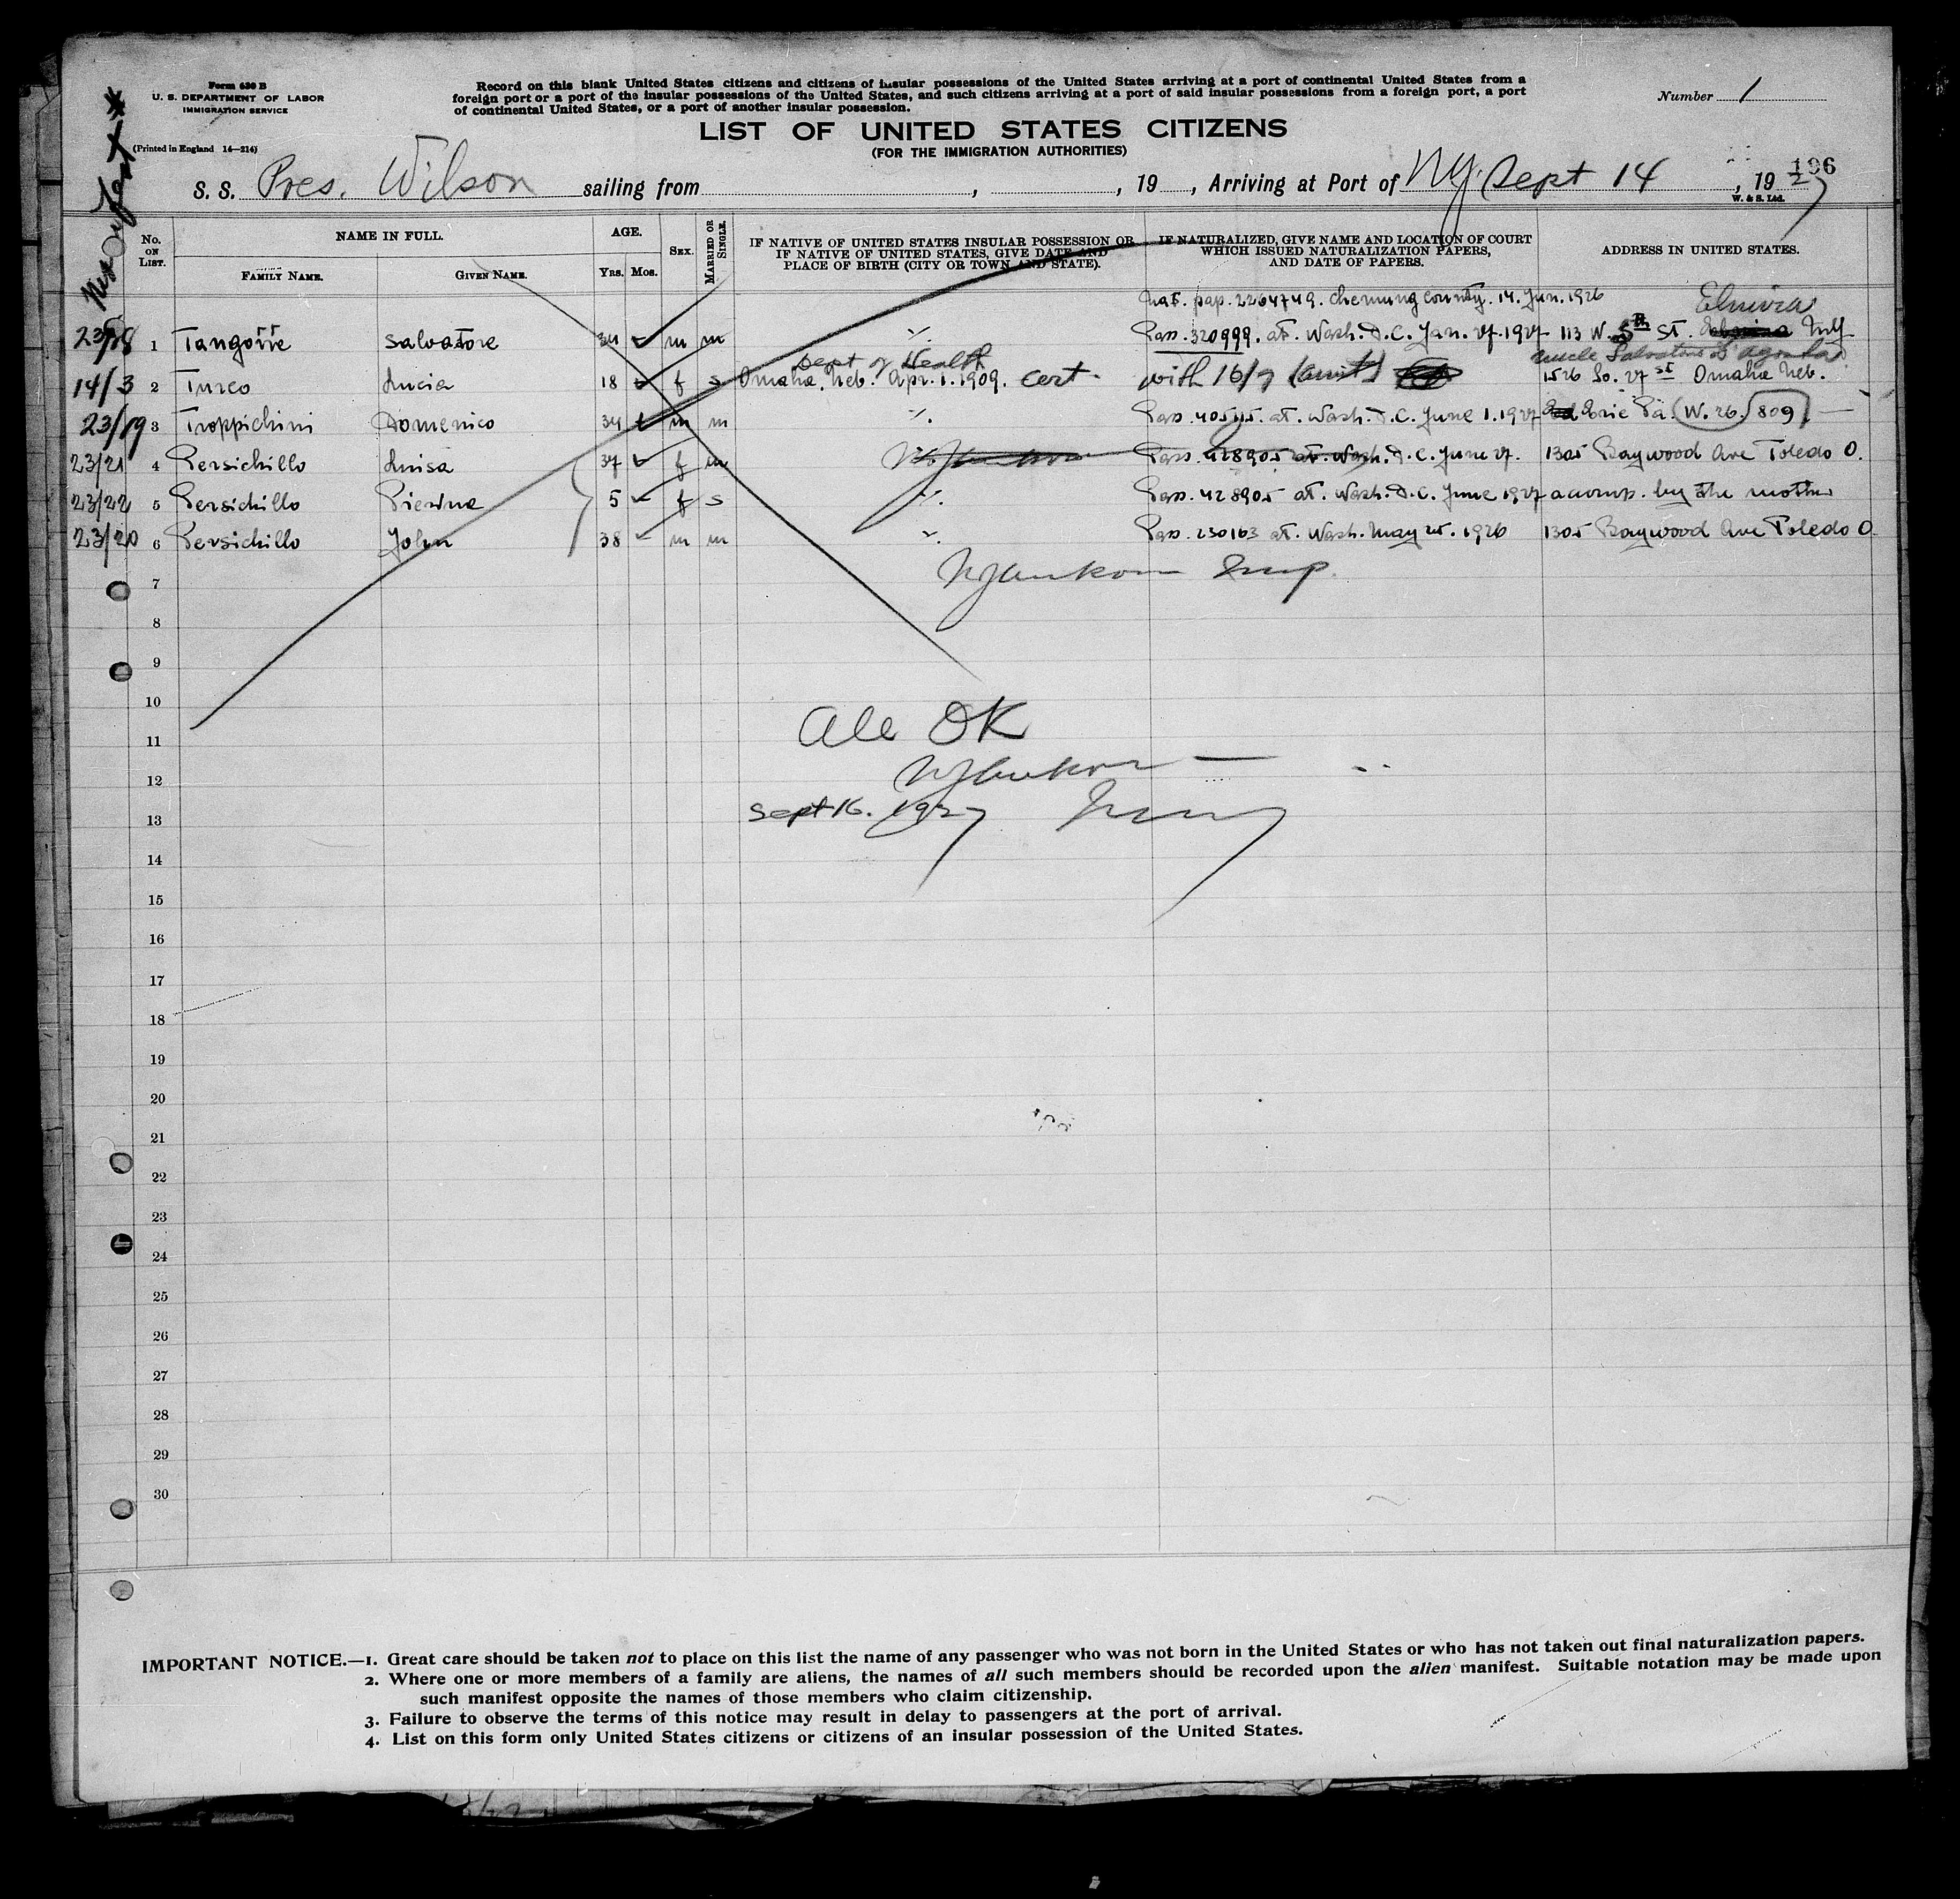 Form 630 B
U. S. DEPARTMENT OF LABOR
IMMIGRATION SERVICE
(Printed in England 14—214)
Record on this blank United States citizens and citizens of insular possessions of the United States arriving at a port of continental United States from a
foreign port or a port of the insular possessions of the United States, and such citizens arriving at a port of said insular possessions from a foreign port, a port
of continental United States, or a port of another insular possession.
Number 1
LIST OF UNITED STATES CITIZENS
(FOR THE IMMIGRATION AUTHORITIES)
196
S. S. Pres. Wilson sailing from , , 19 , Arriving at Port of NY. Sept 14 , 1927
W. & S. Ltd.
No. ON LIST. NAME IN FULL. AGE. SEX. MARRIED OR SINGLE. IF NATIVE OF UNITED STATES INSULAR POSSESSION OR IF NATIVE OF UNITED STATES, GIVE DATE AND PLACE OF BIRTH (CITY OR TOWN AND STATE). IF NATURALIZED, GIVE NAME AND LOCATION OF COURT WHICH ISSUED NATURALIZATION PAPERS, AND DATE OF PAPERS. ADDRESS IN UNITED STATES.
FAMILY NAME. GIVEN NAME. Yrs. Mos.
Nat. pap. 2264749. Chemung County. 14. Jun. 1926 Elmira
23/18 1 Tangorre Salvatore 34 m m Pass. 320999. at. Wash. D.C. Jan. 27. 1927 113 W. 5th St. N.Y.
Dept of Health uncle Salvatore
14/3 2 Turco Lucia 18 f s Omaha, Neb. Apr. 1. 1909. cert. with 16/7 (aunt) 1526 So. 27 st Omaha Neb.
23/19 3 Troppichini Domenico 34 m m Pass. at. Wash. D.C. June 1. 1927 Erie Pa. (W. 26. 809)
23/21 4 Persichillo Luisa 37 f m Pass. 428905 at. Wash. D.C. June 27. 1305 Baywood Ave Toledo O.
23/22 5 Persichillo Pierina 5 f s Pass. 428905 at. Wash. D.C. June 1927 accomp. by the mother
23/20 6 Persichillo John 38 m m Pass. 230163 at. Wash. May 25. 1926 1305 Baywood Ave Toledo O.
7 Insp.
8
9
10
All OK
11
12
Sept 16. 1927
13
14
15
16
17
18
19
20
21
22
23
24
25
26
27
28
29
30
IMPORTANT NOTICE.—1. Great care should be taken not to place on this list the name of any passenger who was not born in the United States or who has not taken out final naturalization papers.
2. Where one or more members of a family are aliens, the names of all such members should be recorded upon the alien manifest. Suitable notation may be made upon
such manifest opposite the names of those members who claim citizenship.
3. Failure to observe the terms of this notice may result in delay to passengers at the port of arrival.
4. List on this form only United States citizens or citizens of an insular possession of the United States.